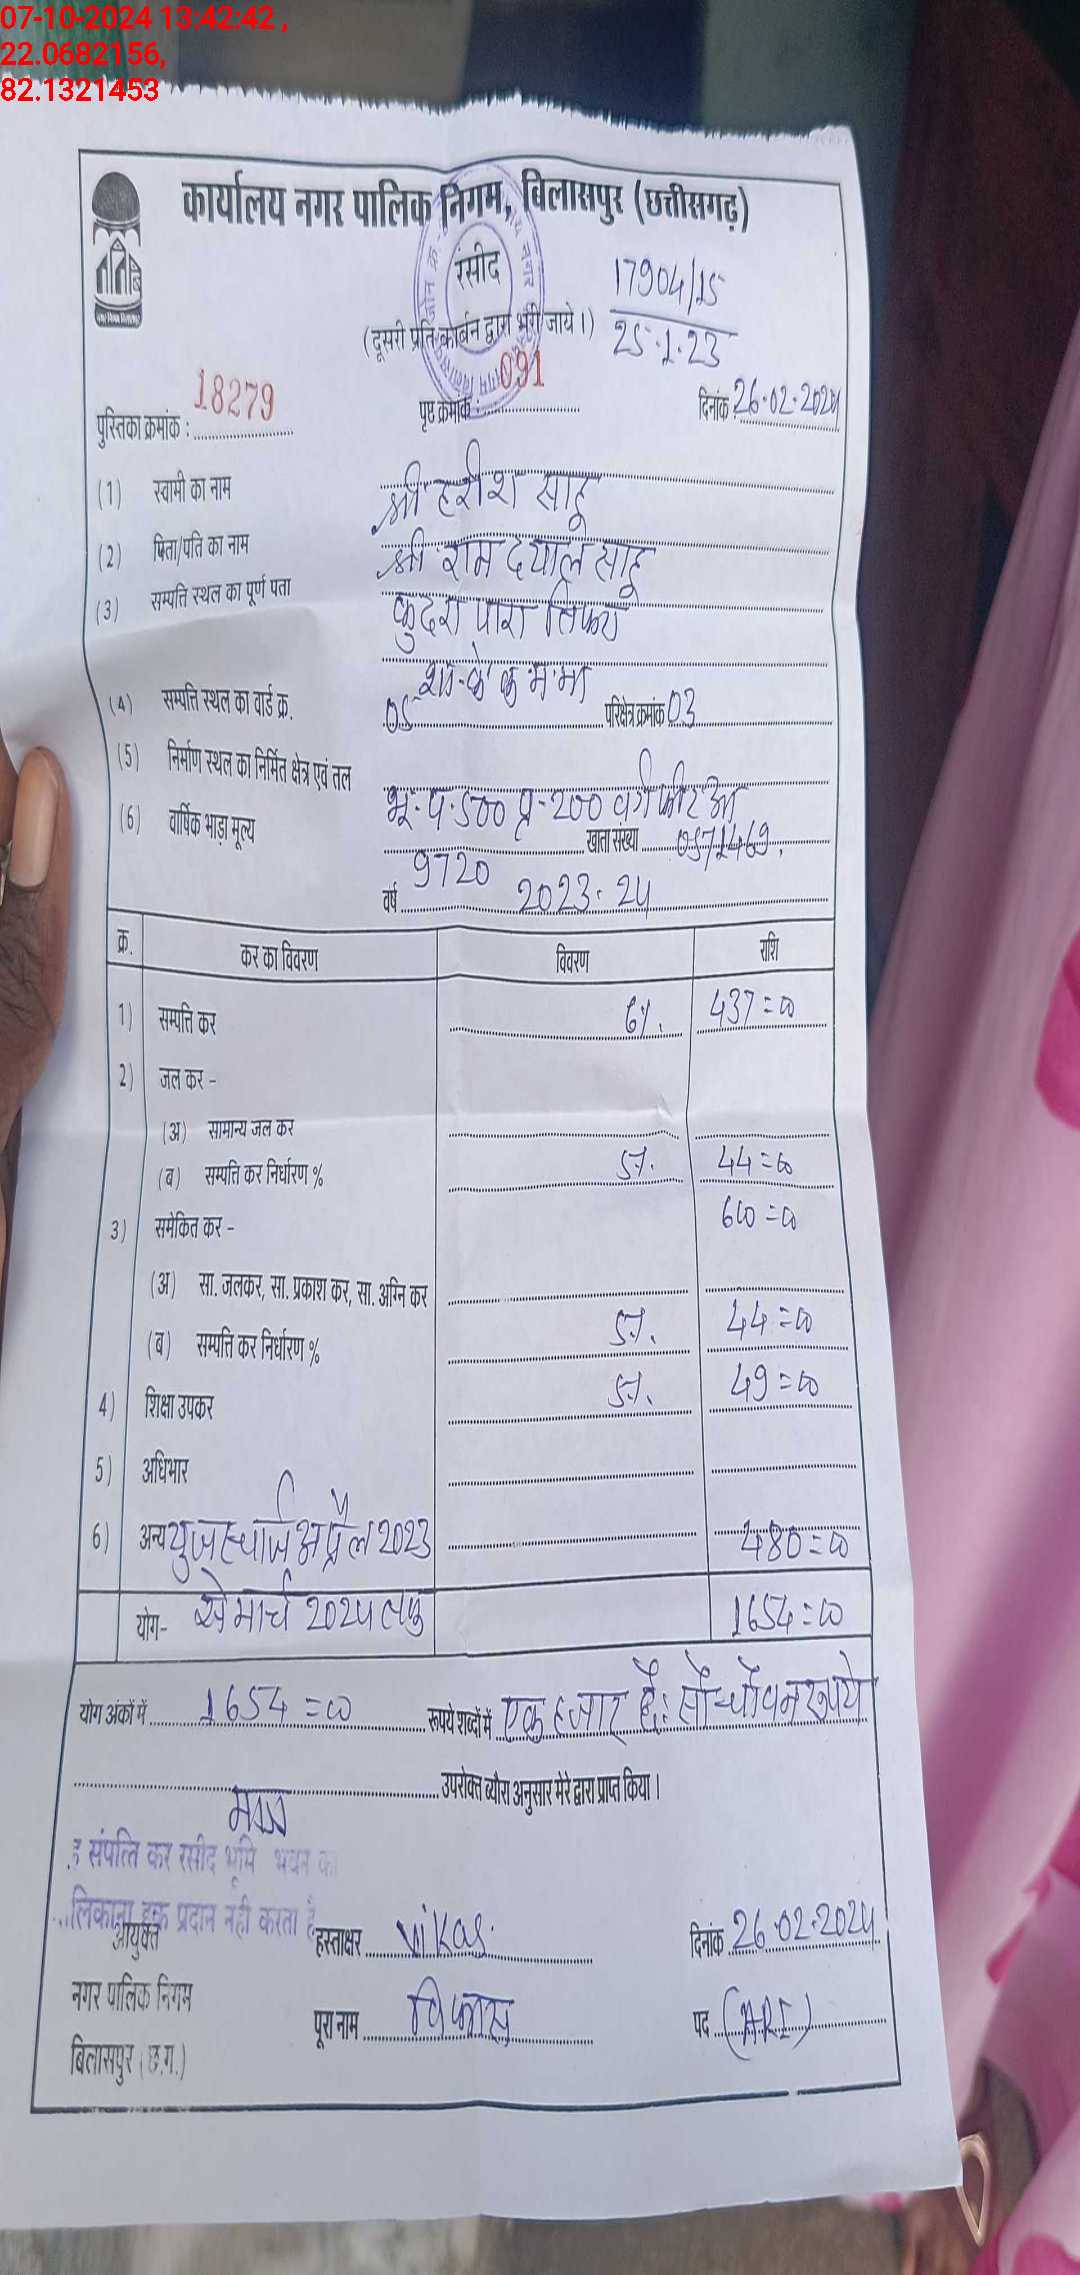 07-10-2024 13:42:42 ,
22.0682156,
82.1321453
कार्यालय नगर पालिक निगम, बिलासपुर (छत्तीसगढ़)
रसीद
17904/15
(दूसरी प्रति कार्बन द्वारा भरी जाये ।)
25.1.23
पुस्तिका क्रमांक : 18279 पृष्ठ क्रमांक : 091 दिनांक 26.02.2024
(1) स्वामी का नाम श्री हरीश साहू
(2) पिता/पति का नाम श्री राम दयाल साहू
(3) सम्पत्ति स्थल का पूर्ण पता कुदरा पारा तिफरा
(4) सम्पत्ति स्थल का वार्ड क्र. 05 परिक्षेत्र क्रमांक 03
(5) निर्माण स्थल का निर्मित क्षेत्र एवं तल
भू.प.500 प्र-200 वर्गफीट
(6) वार्षिक भाड़ा मूल्य 9720 खाता संख्या 0571469
वर्ष 2023-24
क्र. कर का विवरण विवरण राशि
1) सम्पत्ति कर 6% 437=00
2) जल कर -
(अ) सामान्य जल कर
(ब) सम्पत्ति कर निर्धारण % 5% 44=00
3) समेकित कर - 600=00
(अ) सा. जलकर, सा. प्रकाश कर, सा. अग्नि कर
(ब) सम्पत्ति कर निर्धारण % 5% 44=00
4) शिक्षा उपकर 5% 49=00
5) अधिभार
6) अन्य युजर चार्ज अप्रैल 2023 480=00
से मार्च 2024 तक
योग- 1654=00
योग अंकों में 1654=00 रूपये शब्दों में एक हजार छै: सौ चौवन रूपये
उपरोक्त ब्यौरा अनुसार मेरे द्वारा प्राप्त किया ।
संपत्ति कर रसीद भूमि भवन का
प्रदान नही करता है
आयुक्त हस्ताक्षर Vikas दिनांक 26.02.2024
नगर पालिक निगम
पूरा नाम विकास पद (ARI)
बिलासपुर (छ.ग.)